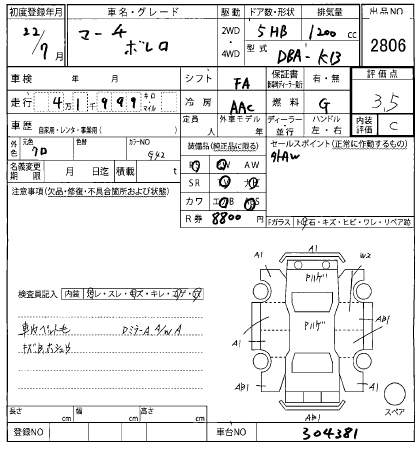 初度登録年月 車名・グレード 駆動 ドア数・形状 排気量 出品NO
22/7月 マーチ ボレロ 2WD・4WD 5HB 1200cc 2806
型式 DBA-K13
車検 年 月 シフト FA 保証書 有・無 評価点
走行 4万1千999 キロ・マイル 冷房 AAC 燃料 G 3.5
車歴 自家用・レンタ・事業用( ) 定員 人 外車モデル 年 ディーラー・並行 ハンドル 左・右 内装評価 C
外色 元色 クロ 色替 カラーNO G42 装備品(純正品に限る) セールスポイント(正常に作動するもの)
名義変更期限 月 日迄 積載 t PS PW AW
注意事項(欠品・修復・不具合箇所および状態) SR TV ナビ
カワ エアB ABS
R券 8800円 Fガラス トビ石・キズ・ヒビ・ワレ・リペア跡
検査員記入 内装 コゲ・キレ
A1 A1 W2
ハゲ
ハゲ
A1 A1
AB1 AB1
AB1 スペア
DミラーA
長さ cm 幅 cm 高さ cm
登録NO 車台NO 304381